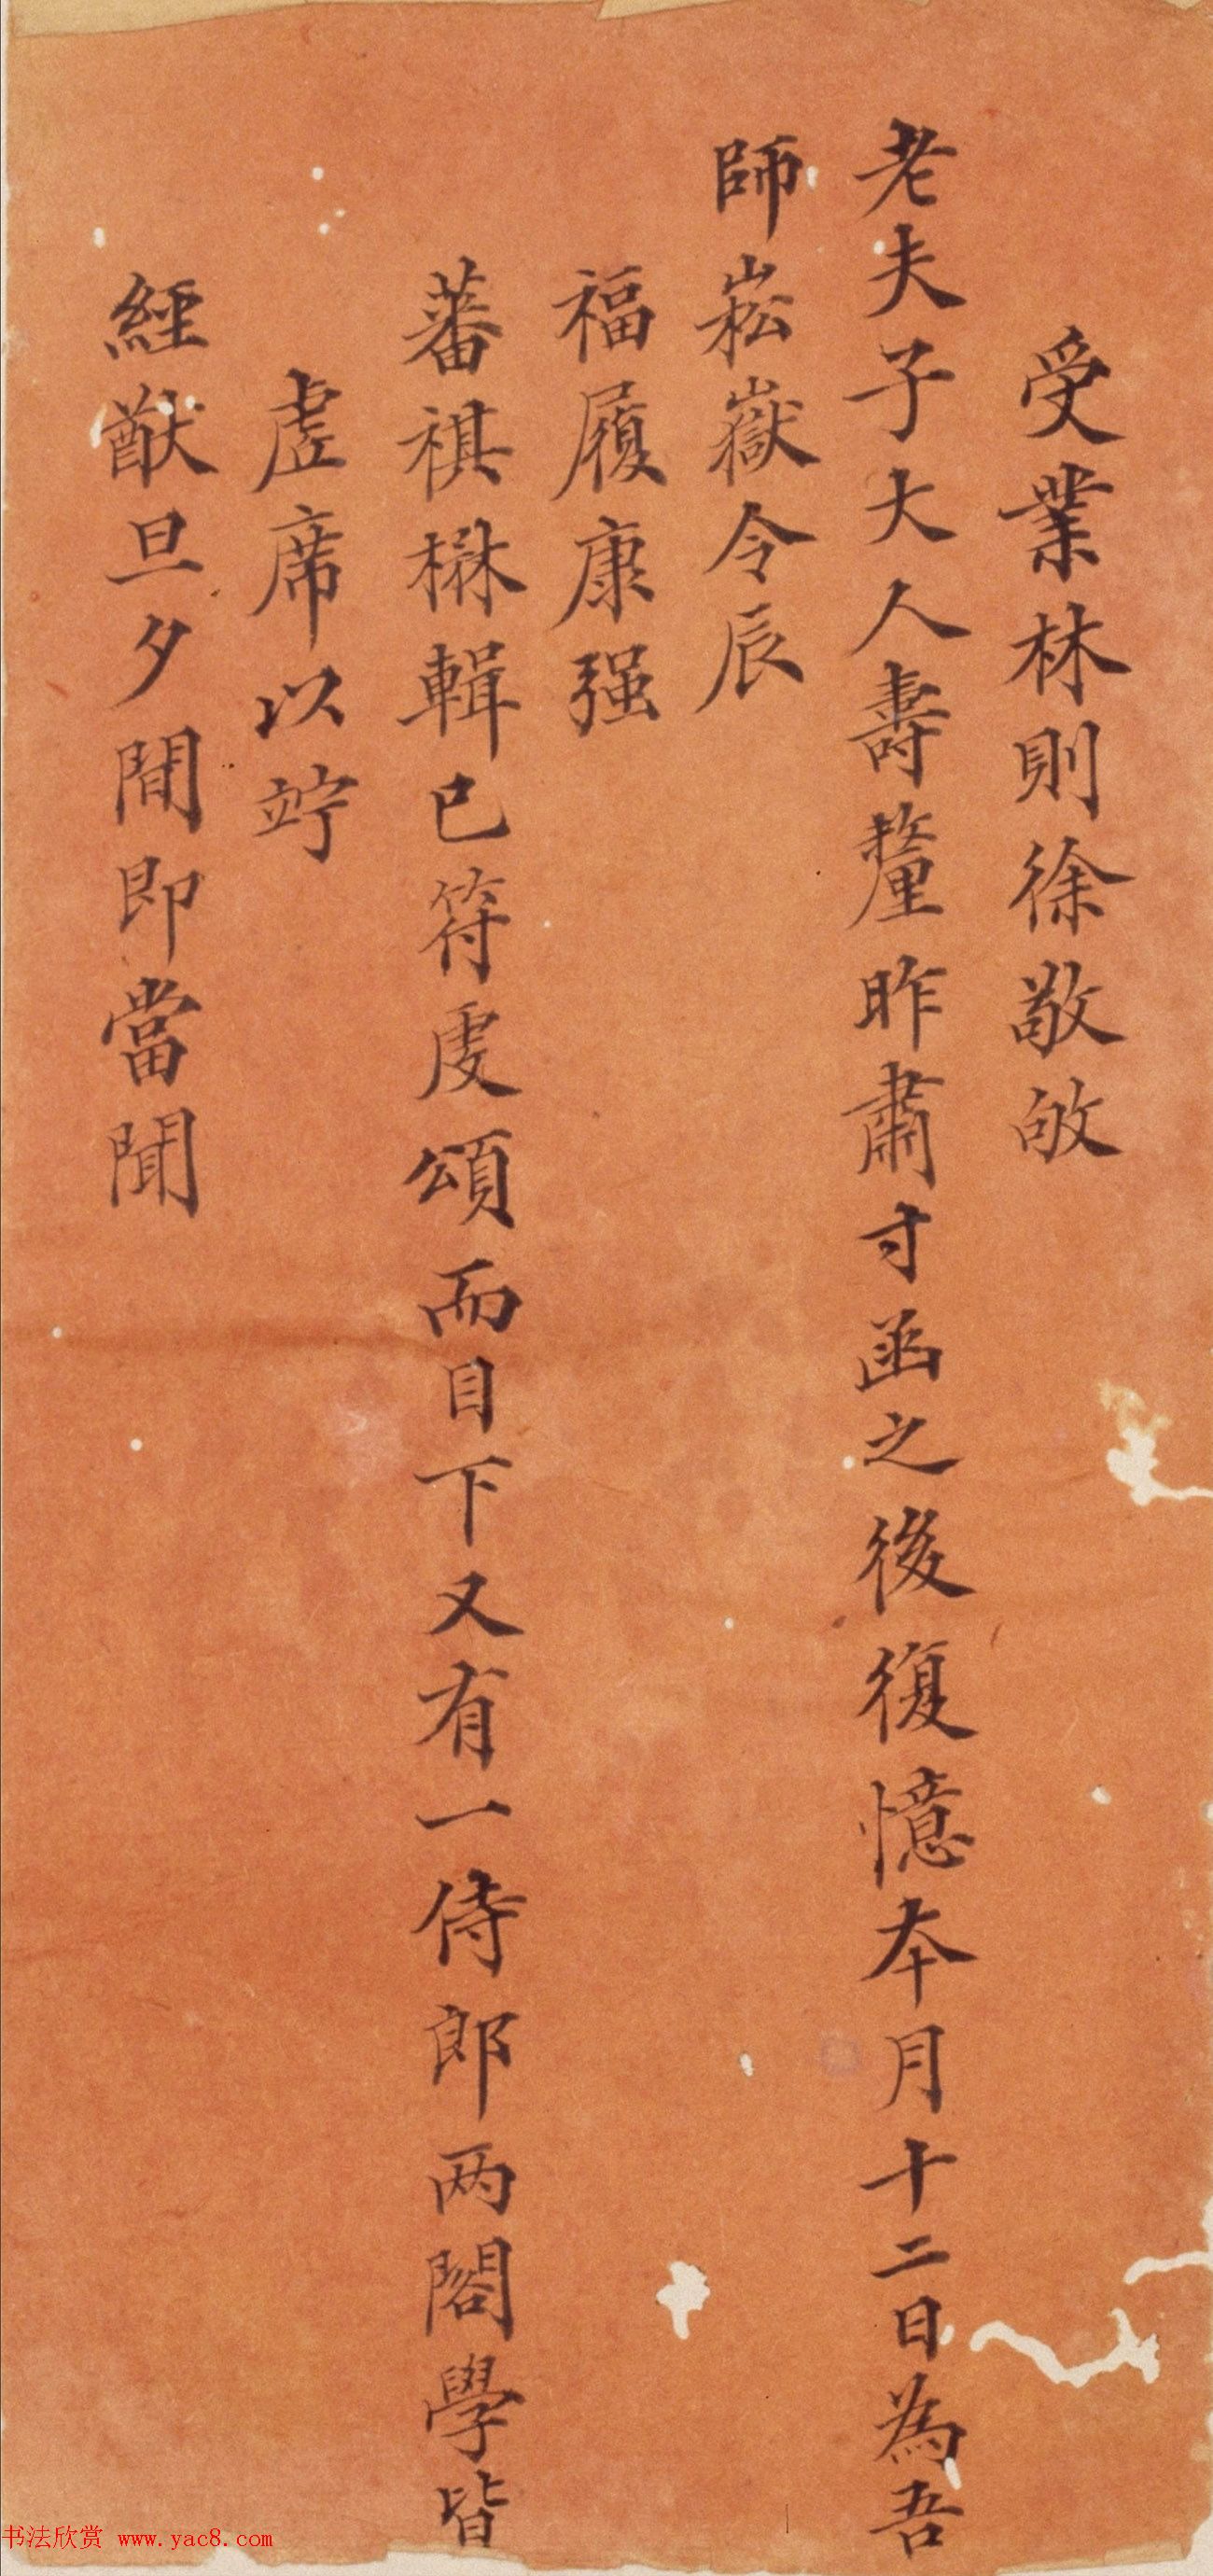 受業林則徐敬啟
老夫子大人壽釐昨肅寸函之後復憶本月十二日為吾
師崧嶽令辰
福履康强
蕃祺楙輯已符虔頌而目下又有一侍郎两閣學皆
虛席以竚
經猷旦夕間即當聞
书法欣赏 www.yac8.com